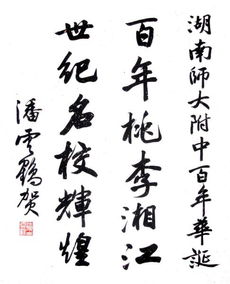 湖南師大附中百年華誕
百年桃李湘江
世紀名校輝煌
潘云鶴贺